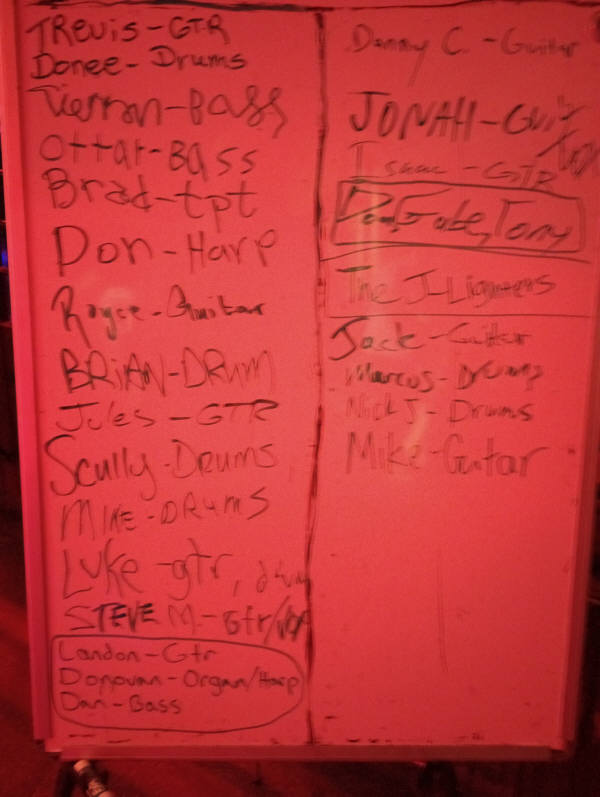 TREVIS-GTR
Donee-Drums
Tierran-BASS
Ottar-BASS
Brad-tpt
Don-HARP
Royce-Guitar
BRIAN-DRUM
Jules-GTR
Scully-DRUMS
MIKE-DRUMS
Luke-gtr, drum
STEVE M.-Gtr/Vox
Landon-Gtr
Donovan-Organ/Harp
Dan-Bass
Danny C.-Guitar
JONAH-Guit
Isaac-GTR
Gabe, Tony
The J-Lighters
Jack-Guitar
Marcus-Drums
Nick J-Drums
Mike-Guitar